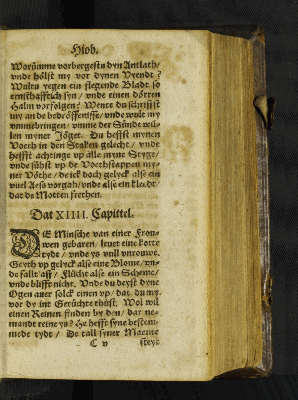 Hiob.
Worümme vorbergestu dyn Antlath/
vnde höltst my vor dynen Vyendt?
Wultu yegen ein flegende Bladt so
ernsthafftich syn/ vnde einen dörren
Halm vorfolgen? Wente du schriffst
my an de bedröffenisse/ vnde wult my
vmmebringen/ vmme der Sünde wil-
len myner Jöget. Du heffst mynen
Voeth in den Staken gelecht/ vnde
heffst achtinge vp alle myne Styge/
vnde sühst vp de Voethstappen my-
ner Vöthe/ de ick doch gelyck alse ein
vuel Aess vorgah/ vnde alse ein kleedt/
dat de Motten frethen.
Dat XIIII. Capittel.
DE Minsche van einer Frou-
wen gebaren/ leuet eine korte
tydt/ vnde ys vull vnrouwe.
Geyth vp gelyck alse eine Blome/ vn-
de fallt aff/ Flücht alse ein Scheme/
vnde blifft nicht. Vnde du deyst dyne
Ogen auer solck einen vp/ dat du my
vor dy int Gerüchte thüst. Wol wil
einen Reinen finden by den/ dar ne-
mandt reine ys? He hefft syne bestem-
mede tydt/ De tall syner Maente
C v steyt